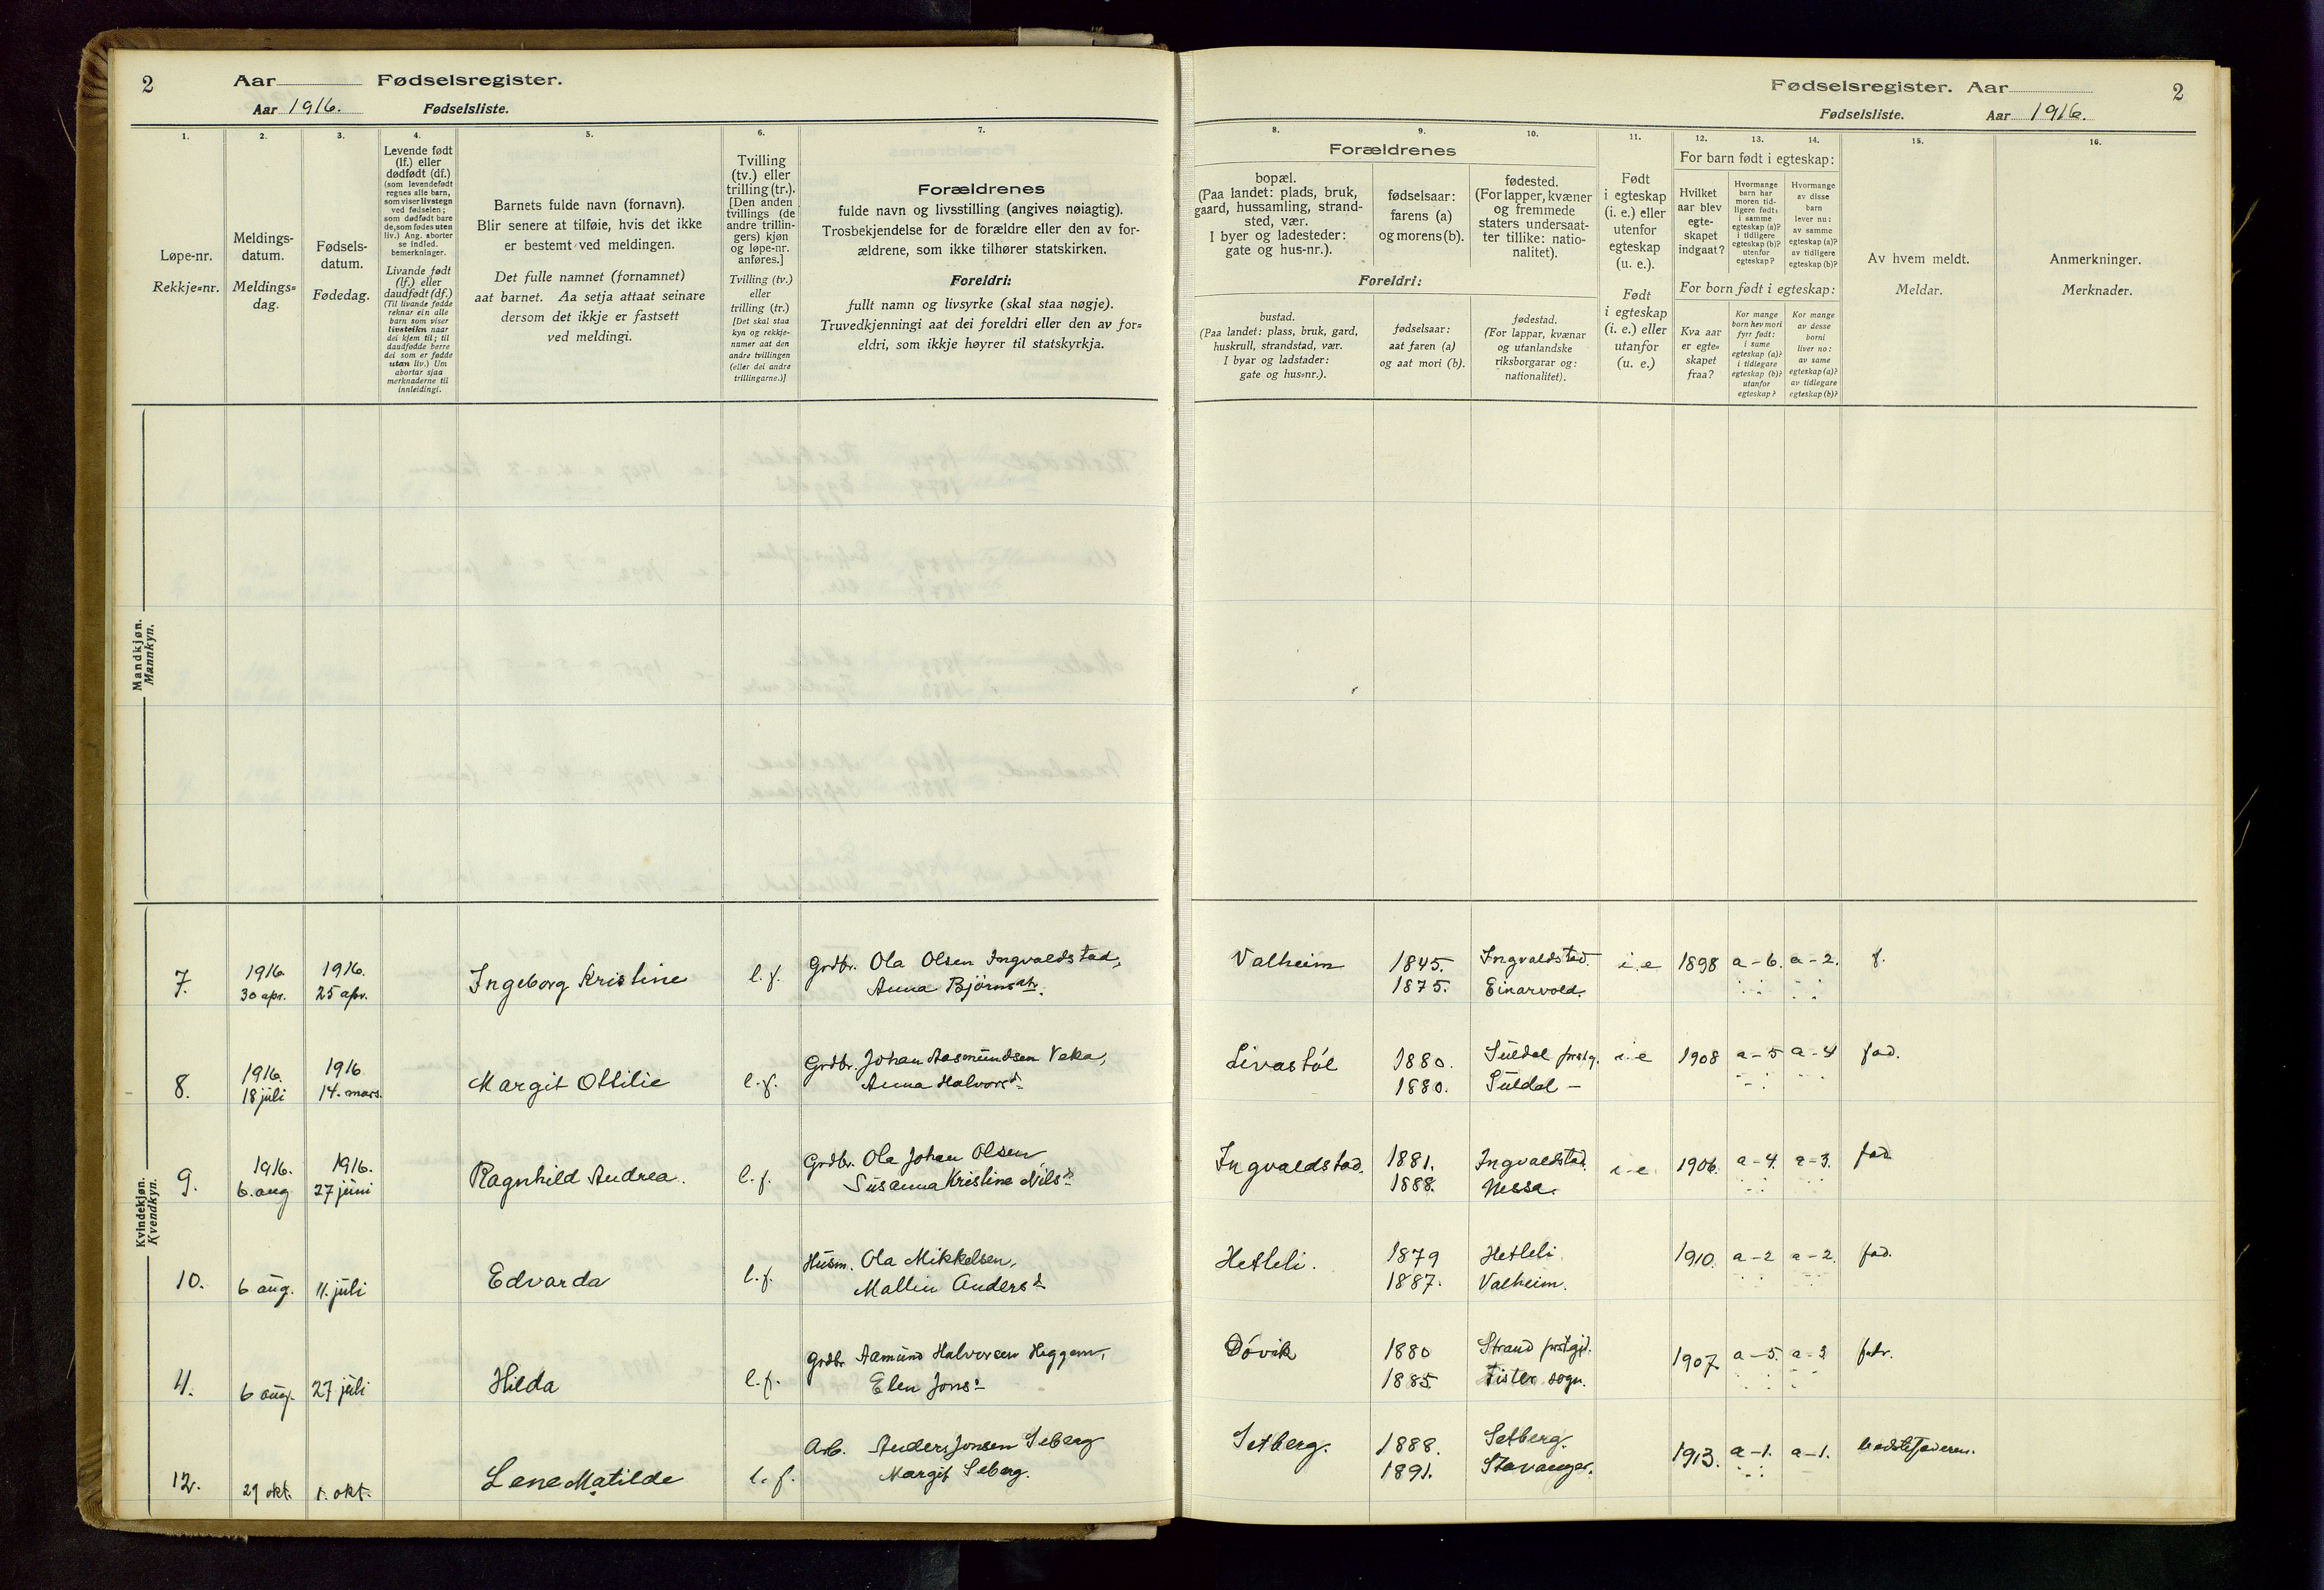 2 Aar Fødselsregister.
Aar 1916. Fødselsliste.
Fødselsregister. Aar 2
Fødselsliste. Aar 1916.
1. 2. 3. 4. 5. 6. 7.
Løpe-nr.
Rekkje-nr.
Meldings-
datum.
Meldings-
dag.
Fødsels-
datum.
Fødedag.
Levende født
(lf.) eller
dødfødt (df.)
(som levendefødt
regnes alle barn,
som viser livstegn
ved fødselen;
som dødfødt bare
de, som fødes uten
liv.) Ang. aborter
se indled.
bemerkninger.
Livande født
(lf.) eller
daudfødt (df.)
(Til livande fødde
reknar ein alle
barn som viser
livsteikn naar
dei kjem til; til
daudfødde berre
dei som er fødde
utan liv.) Um
abortar sjaa
merknaderne til
innleidingi.
Barnets fulde navn (fornavn).
Blir senere at tilføie, hvis det ikke
er bestemt ved meldingen.
Det fulle namnet (fornamnet)
aat barnet. Aa setja attaat seinare
dersom det ikkje er fastsett
ved meldingi.
Tvilling
(tv.) eller
trilling (tr.).
[Den anden
tvillings (de
andre trillin-
gers) kjøn
og løpe-nr.
anføres.]
Tvilling (tv.)
eller
trilling (tr.)
[Det skal staa
kyn og rekkje-
numer aat den
andre tvillingen
(eller dei andre
trillingarne.)]
Forældrenes
fulde navn og livsstilling (angives nøiagtig).
Trosbekjendelse for de forældre eller den av for-
ældrene, som ikke tilhører statskirken.
Foreldri:
fullt namn og livsyrke (skal staa nøgje).
Truvedkjenningi aat dei foreldri eller den av for-
eldri, som ikkje høyrer til statskyrkja.
8. 9. 10. 11. 12. 13. 14. 15. 16.
Forældrenes
bopæl.
(Paa landet: plads, bruk,
gaard, hussamling, strand-
sted, vær.
I byer og ladesteder:
gate og hus-nr.).
fødselsaar:
farens (a)
og morens (b).
fødested.
(For lapper, kvæner
og fremmede
staters undersaat-
ter tillike: natio-
nalitet).
Foreldri:
bustad.
(Paa landet: plass, bruk, gard,
huskrull, strandstad, vær.
I byar og ladstader:
gate og hus-nr.).
fødselsaar:
aat faren (a)
og aat mori (b).
fødestad.
(For lappar, kvænar
og utanlandske
riksborgarar og:
nationalitet).
Født
i egteskap
(i. e.) eller
utenfor
egteskap
(u. e.).
Født
i egteskap
(i. e.) eller
utanfor
(u. e.)
For barn født i egteskap:
Hvilket
aar blev
egte-
skapet
indgaat?
Hvormange
barn har
moren tid-
ligere født:
i samme
egteskap (a)?
i tidligere
egteskap (b)?
utenfor
egteskap?
Hvormange
av disse
barn
lever nu:
av samme
egteskap (a)?
av tidligere
egteskap (b)?
For born født i egteskap:
Kva aar
er egte-
skapet
fraa?
Kor mange
born hev mori
fyrr født:
i same
egteskap (a)?
i tidlegare
egteskap (b)?
utanfor
egteskap?
Kor mange
av desse
borni
liver no:
av same
egteskap (a)?
av tidlegare
egteskap (b)?
Av hvem meldt.
Meldar.
Anmerkninger.
Merknader.
Mandkjøn.
Mannkyn.
Kvindekjøn.
Kvendkyn.
7. 1916. 30 apr. 1916. 25 apr. Ingeborg Kristine l.f. Grdbr. Ola Olsen Ingvaldstad, Valheim 1845. Ingvaldstad. i.e 1898 a-6. a-2. f.
Anna Björnsdtr. 1875. Einarvold.
8. 1916. 18 juli 1916 14. mars. Margit Ottilie l.f. Grdbr. Johan Aasmundsen Veka, Livastøl 1880. Suldal prstg. i.e 1908 a-5 a-4 fad.
Anna Halvorsd. 1880. Suldal —
9. 1916. 6. aug 1916. 27 juni Ragnhild Andrea. l.f. Grdbr. Ola Johan Olsen Ingvaldstad. 1881. Ingvaldstad. i.e. 1906. a-4. a-3. fad.
Susanna Kristine Nilsd. 1888. Nessa.
10. 6 aug. 11. juli Edvarda l.f. Husm. Ola Mikkelsen, Hetleli. 1879 Hetleli. 1910. a-2 a-2. fad.
Mallin Andersd. 1887. Valheim.
11. 6 aug. 27 juli Hilda l.f. Grdbr. Aamund Halvorsen Heggem, Døvik 1880 Strand prstgjl. 1907. a-5. a-3 fadr.
Elen Jonsd. 1885. Fister sogn.
12. 29 okt. 1. okt. Lene Matilde l.f. Arb. Anders Jonsen Seberg Setberg. 1888. Setberg. 1913. a-1. a-1. bedstefaderen.
Margit Seberg. 1891. Stavanger.